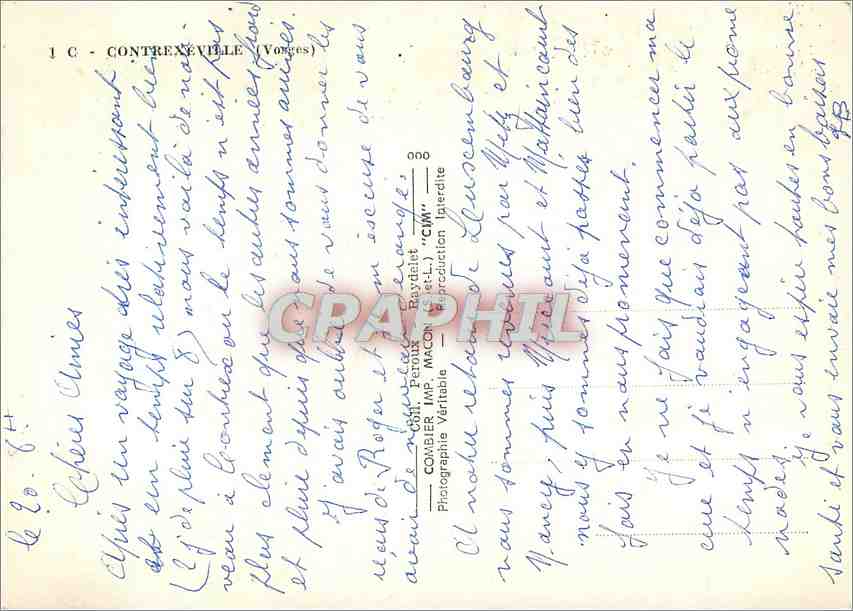 1 C - CONTREXÉVILLE (Vosges)
le 20. 8 H
Chères Amies
Après un voyage très intéressant
et un temps relativement bien
(2 j de pluie sur 8) nous voilà de nou-
veau à Contrex où le temps n'est pas
plus clément que les autres années froid
et pluie depuis que nous sommes arrivées.
J'avais oublié de vous donner les
de Roger et m'excuse de vous
avoir de nouveau
A notre retour de Luxembourg
nous sommes revenues par Metz et
Nancy, puis Mirecourt et Mattaincourt
nous y sommes déjà passées bien des
fois en nous promenant.
Je ne fais que commencer ma
cure et je voudrais déjà partir le
temps n'engageant pas aux prome
nades.
Je vous espère toutes en bonne
santé et vous envoie mes bons baisers
Coll. Peroux - Raydelet
000
COMBIER IMP. MACON (S.-et-L.) "CIM"
Photographie Véritable — Reproduction Interdite
CPAPHIL